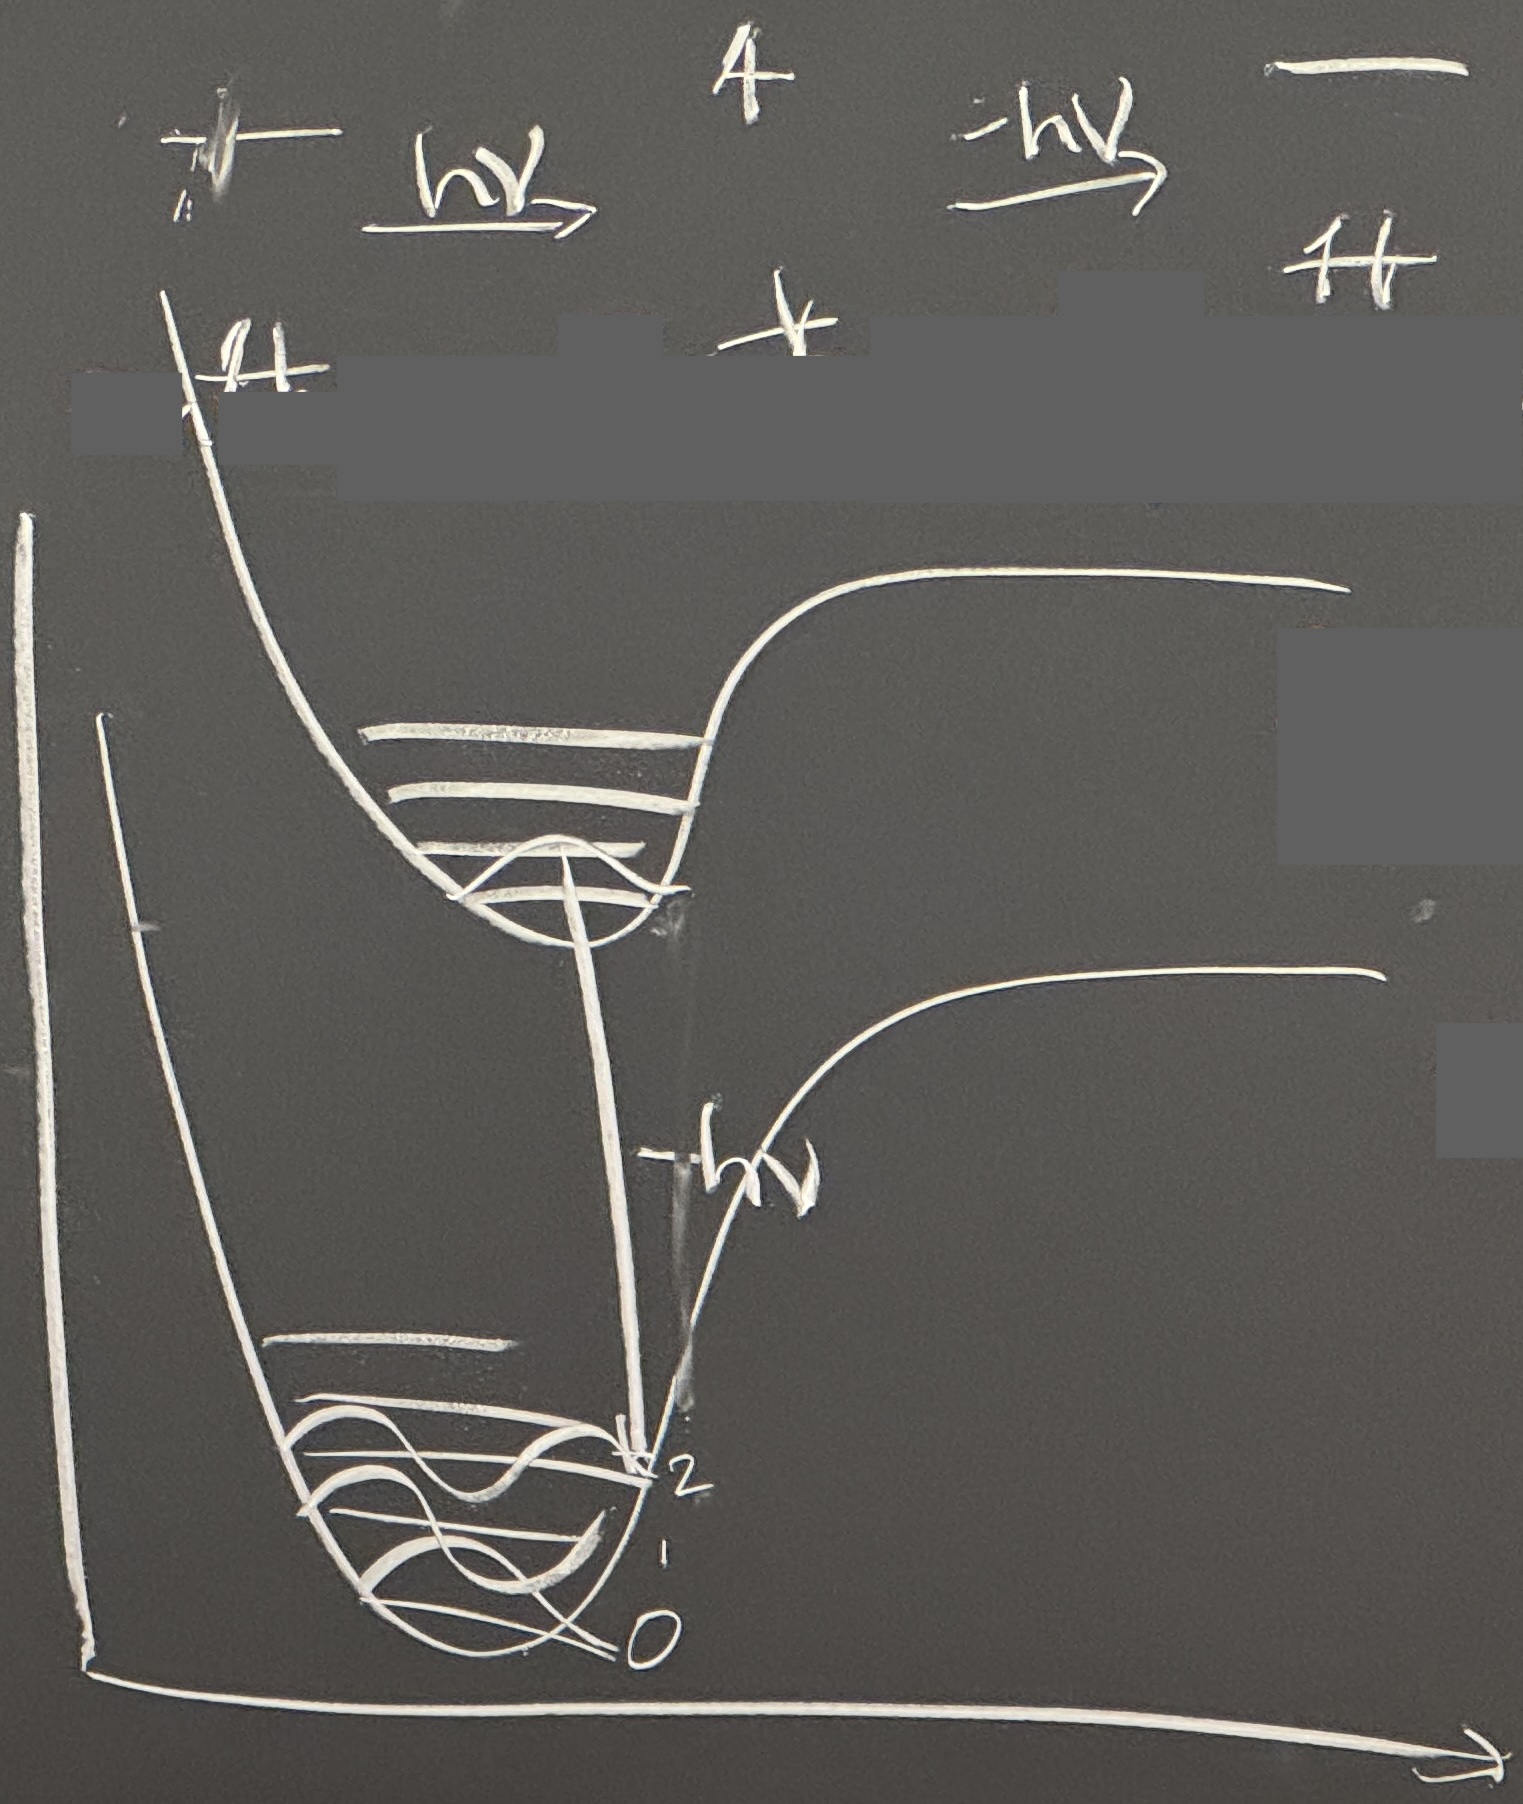 hν -hν
-hν
2
1
0